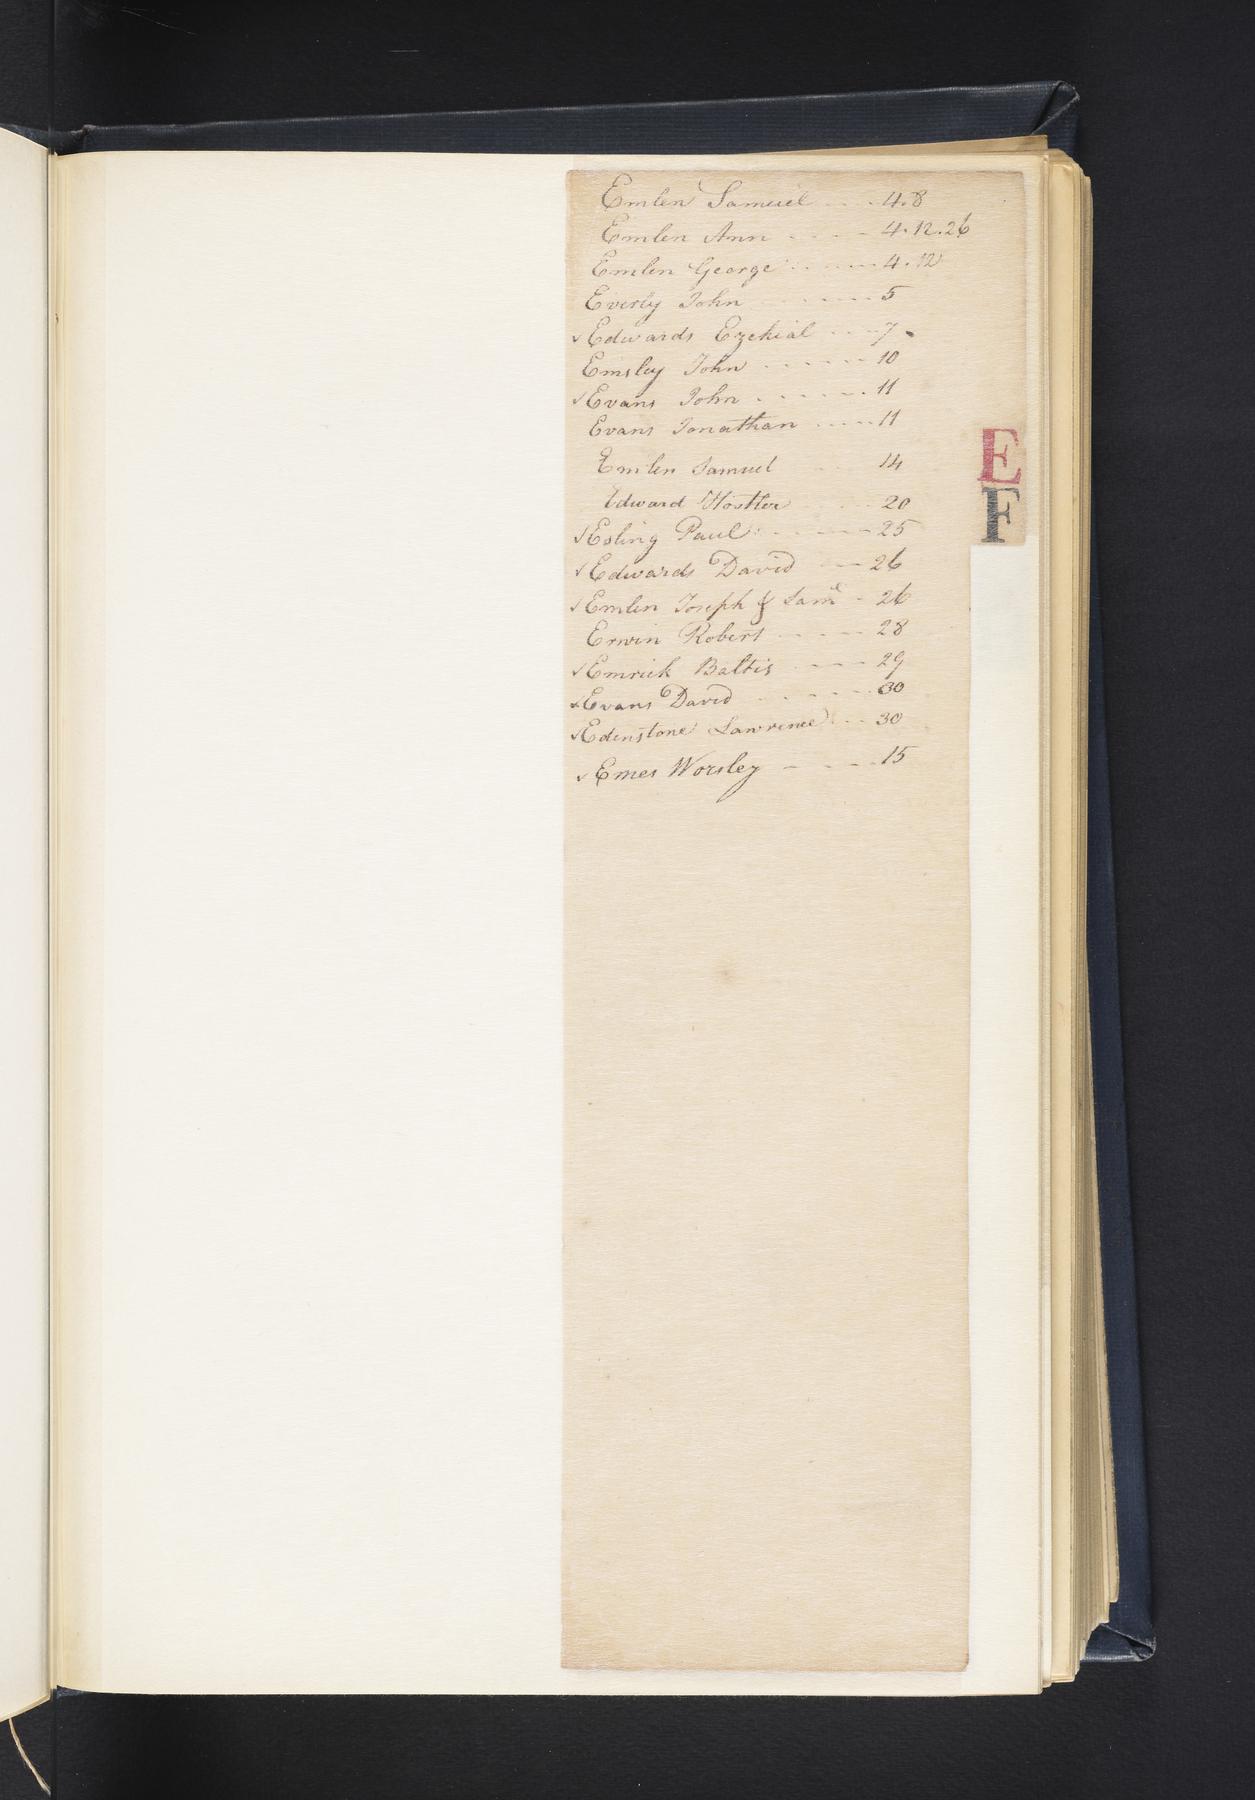 Emlen Samuel - - - 4.8
Emlen Ann - - - - 4.12.26
Emlen George - - - - 4.12
Everly John - - - - 5
✓Edwards Ezekial - - - 7
Emsley John - - - - - 10
✓Evans John - - - - - 11
Evans Jonathan - - - - 11
Emlen Samuel - - 14
Edward Hostler - - - 20
✓Esling Paul - - - - 25
✓Edwards David - - 26
✓Emlen Joseph & Saml - 26
Erwin Robert - - - - 28
✓Emrick Baltis - - - 29
✓Evans David - - - - 30
✓Edenstone Lawrence - - 30
✓Emes Worsley - - - - 15
E
F